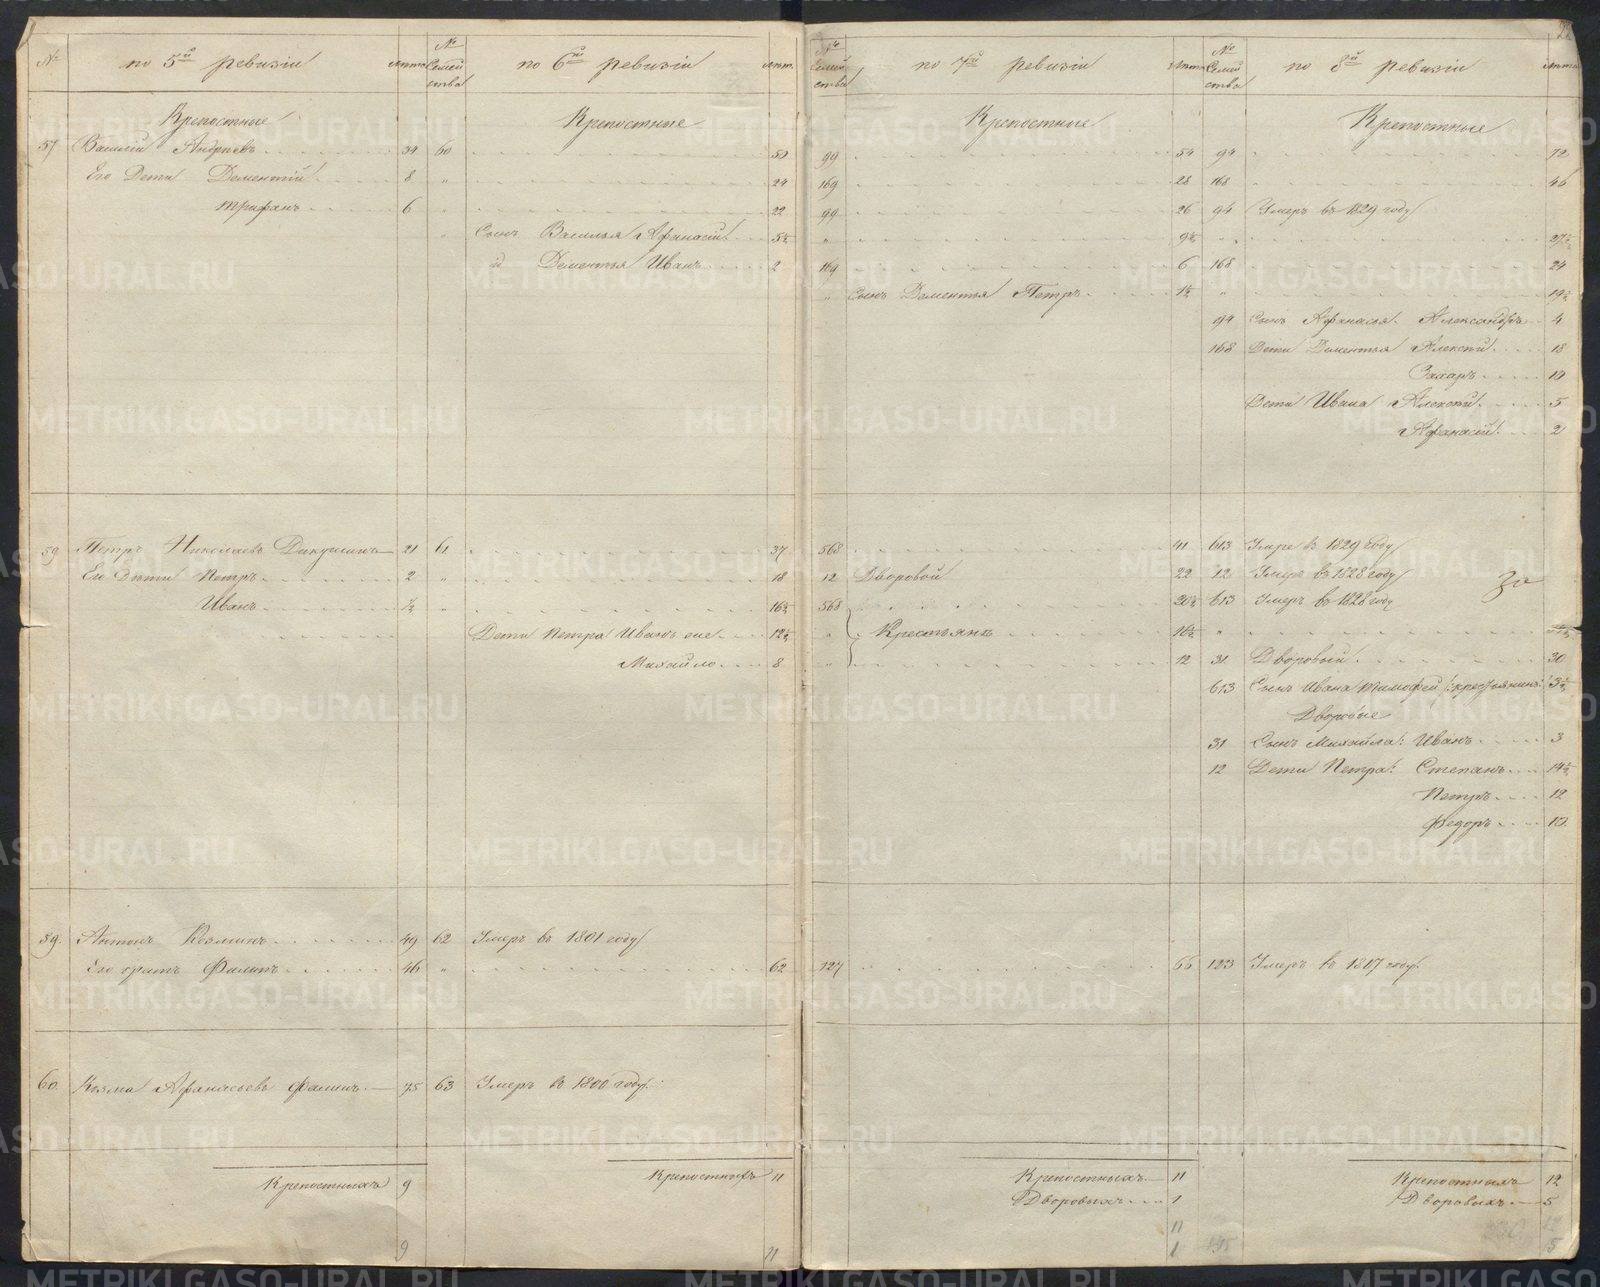 № по 5й ревизіи лѣта № Семей ства по 6й ревизіи лѣта
Крепостные Крепостные
57 Василій Андреевъ 34 60 50
Его Дети Дементій 8 " 24
Трифанъ 6 " 22
" Сынъ Василья Афанасій 5½
и Дементья Иванъ 2
59 Петръ Николаевъ 21 61 37
Его Дѣти Петръ 2 " 18
Иванъ ½ " 16½
Дети Петра Иванъ еще 12½
Михайло 8
59 Антонъ Козминъ 49 62 Умеръ въ 1801 году
Его братъ Филипъ 46 " 62
60 Козма Афанасьевъ Фалинъ 75 63 Умеръ в 1800 году
Крепостныхъ 9 Крепостныхъ 11
9 11
№ Семей ства по 7й ревизіи лѣта № Семей ства по 8й ревизіи лѣта
Крепостные Крепостные
99 54 94 72
169 28 168 46
99 26 94 Умеръ въ 1829 году
" 9½ " 27½
169 6 168 24
" Сынъ Дементья Петръ 1½ " 19½
194 Сынъ Афанасья Александръ 4
168 Дети Дементья Алексей 18
Захаръ 10
Дети Ивана Алексей 5
Афанасій 2
568 41 613 Умре в 1829 году
12 Дворовой 22 12 Умеръ въ 1828 году
568 20½ 613 Умеръ въ 1828 году
" Крестьянъ 16½ "
" 12 31 Дворовый 30
613 Сынъ Ивана Тимофей крестьянинъ 3½
Дворовые
31 Сынъ Михайла: Иванъ 3
12 Дети Петра: Степанъ 14½
Петръ 12
Федоръ 10
127 66 123 Умеръ в 1817 году
Крепостныхъ 11 Крепостныхъ 12
Дворовыхъ 1 Дворовыхъ 5
11 12
1 5
METRIKI.GASO-URAL.RU